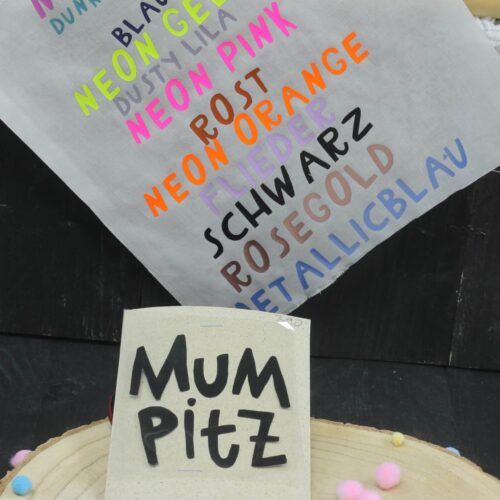 BLAU
NEON GELB
DUSTY LILA
NEON PINK
ROST
NEON ORANGE
FLIEDER
SCHWARZ
ROSEGOLD
METALLICBLAU
MUM
PitZ